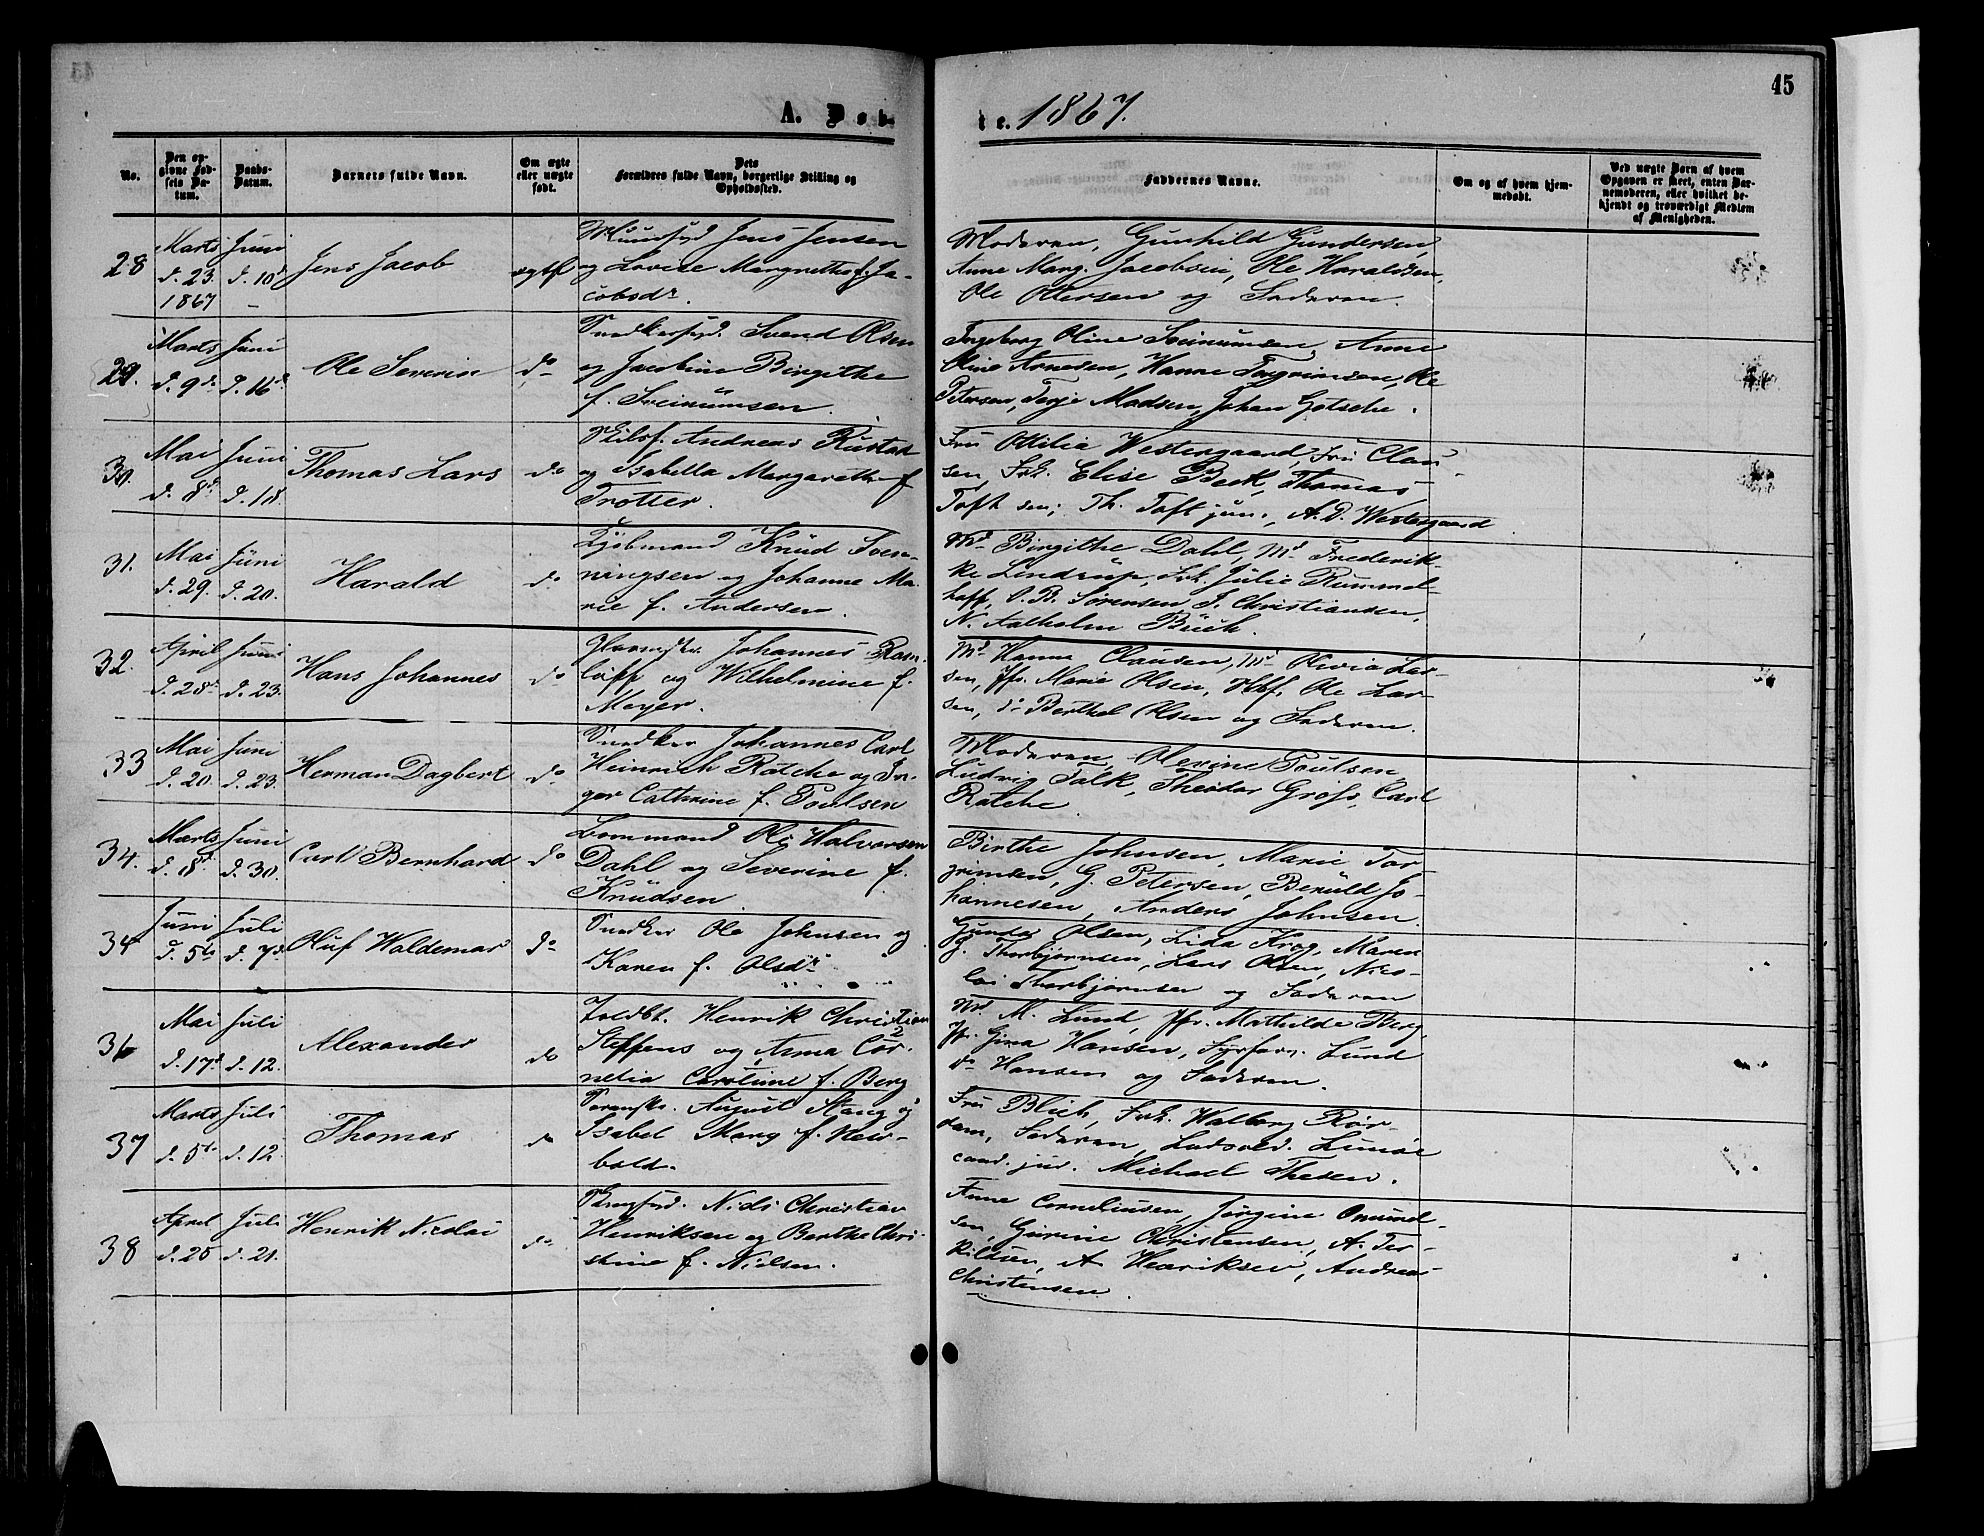 45
A. Døb
te. 1867.
No.
Den op-
givne Fød-
sels Da-
tum.
Daabs-
Datum.
Barnets fulde Navn.
Om ægte
eller uægte
født.
Dets
Forældres fulde Navn, borgerlige Stilling og
Opholdssted.
Faddernes Navne.
Om og af hvem hjem-
medøbt.
Ved uægte Børn af hvem
Opgaven er skeet, enten Bar-
nemoderen, eller hvilket be-
kjendt og troværdigt Medlem
af Menigheden.
28
Marts
d. 23.
1867
Juni
d. 10d
Jens Jacob
ægtf
Jens Jensen
og Lovise Margrethe f. Ja-
cobsdr.
Moderen, Gunhild Gundersen,
Anne Marg. Jacobsen, Ole Haraldsen,
Ole Ottersen og Faderen.
29.
Marts
d. 9d
Juni
d. 16d
Ole Severin
do
Snedkersvd. Svend Olsen
og Jacobine Birgithe
f. Sveinumsen.
Ingeborg Oline Sveinumsen, Anne
Oline Arnesen, Hanne Torgrimsen, Ole
Petersen, Terje Madsen, Johan Gotsche.
30.
Mai
d. 8d
Juni
d. 18.
Thomas Lars
do
Skibsf. Andreas Rustad
og Isabella Margarethe f
Trotter.
Fru Ottilia Westergaard, Fru Clau-
sen, Frk. Elise Beck, Thomas
Toft sen; Th. Toft jun., A. D. Westergaard
31.
Mai
d. 29.
Juni
d. 20.
Harald
do
Kjøbmand Knud Sven-
ningsen og Johanne Ma-
rie f. Andersen.
Md Birgithe Dahl, Md Frederik-
ke Lindrup, Frk. Julie Rummel-
hoff, O. B. Sørensen, J. Christiansen,
N. Aalholm Buch.
32.
April
d. 28d
Juni
d. 23.
Hans Johannes
do
Johannes Ram-
løff og Wilhelmine f.
Meyer.
Md Hanne Clausen, Md Olivia Lar-
sen, Jfr. Marie Olsen, Hbf. Ole Lar-
sen, do Berthel Olsen og Faderen.
33
Mai
d. 20.
Juni
d. 23.
Herman Dagbert
do
Snedker Johannes Carl
Heinrich Ratche og In-
ger Cathrine f. Poulsen
Moderen, Olevine Poulsen,
Ludvig Falk, Theodor Gross, Carl
Ratche
34.
Marts
d. 8d
Juni
d. 30.
Carl Bernhard
do
Tommand Ole Halvorsen
Dahl og Severine f.
Knudsen
Birthe Johnsen, Marie Tor-
grimsen, G. Petersen, Beruld Jo-
hannesen, Anders Johnsen.
34
Juni
d. 5te
Juli
d. 7d.
Oluf Waldemar
do
Snedker Ole Johnsen og
Karen f. Olsdr
Gunder Olsen, Lida Krog, Maren
G. Thorbjørnsen, Lars Olsen, Nico-
lai Thorbjørnsen og Faderen
36
Mai
d. 17d
Juli
d. 12.
Alexander
do
Toldbt. Henrik Christian
Steffens og Anna Cor-
nelia Caroline f. Berg
Md M. Lund, Jfr. Mathilde Berg,
Jfr. Gina Hansen, Lund
do Hansen og Faderen.
37
Marts
d. 5te
Juli
d. 12.
Thomas
do
August Stang og
Isabel Mary f. New-
bold.
Fru Blich, Frk. Walborg Rør-
dam, Faderen,
cand. jur. Michael Thesen.
38
April
d. 25
Juli
d. 21.
Henrik Nicolai
do.
Niels Christian
Henriksen og Berthe Chri-
stine f. Nielsen.
Anne Corneliusen, Jørgine Omund-
sen, Gurine Christensen, A. Ter-
kildsen, A. Henriksen, Andreas
Christensen.